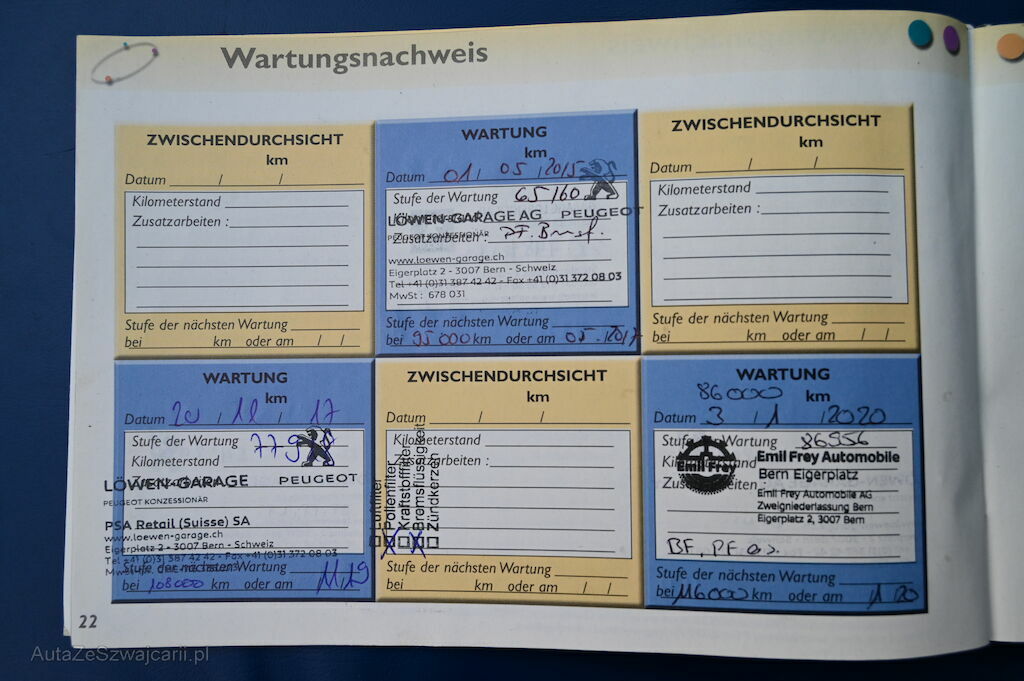 Wartungsnachweis
ZWISCHENDURCHSICHT
km
Datum / /
Kilometerstand
Zusatzarbeiten :
Stufe der nächsten Wartung
bei km oder am / /
WARTUNG
km
Datum 01 / 05 / 2015
Stufe der Wartung 65160
LÖWEN-GARAGE AG PEUGEOT
PEUGEOT KONZESSIONÄR
Zusatzarbeiten : PF.
www.loewen-garage.ch
Eigerplatz 2 - 3007 Bern - Schweiz
Tel +41 (0)31 387 42 42 - Fax +41 (0)31 372 08 03
MwSt : 678 031
Stufe der nächsten Wartung
bei 95000 km oder am 05 . 2017
ZWISCHENDURCHSICHT
km
Datum / /
Kilometerstand
Zusatzarbeiten :
Stufe der nächsten Wartung
bei km oder am / /
WARTUNG
km
Datum 20 / 12 / 17
Stufe der Wartung
Kilometerstand
LÖWEN-GARAGE PEUGEOT
PEUGEOT KONZESSIONÄR
PSA Retail (Suisse) SA
www.loewen-garage.ch
Eigerplatz 2 - 3007 Bern - Schweiz
Tel +41 (0)31 387 42 42 - Fax +41 (0)31 372 08 03
Stufe der nächsten Wartung
bei 108000 km oder am 11/19
ZWISCHENDURCHSICHT
km
Datum / /
Kilometerstand
Zusatzarbeiten :
Luftfilter
Pollenfilter
Kraftstofffilter
Bremsflüssigkeit
Zündkerzen
Stufe der nächsten Wartung
bei km oder am / /
WARTUNG
86000 km
Datum 3 / 1 / 2020
Stufe der Wartung 86956
Kilometerstand
Zusatzarbeiten :
Emil Frey
Emil Frey Automobile
Bern Eigerplatz
Emil Frey Automobile AG
Zweigniederlassung Bern
Eigerplatz 2, 3007 Bern
BF, PF
Stufe der nächsten Wartung
bei 116000 km oder am 1 20
22
AutaZeSzwajcarii.pl